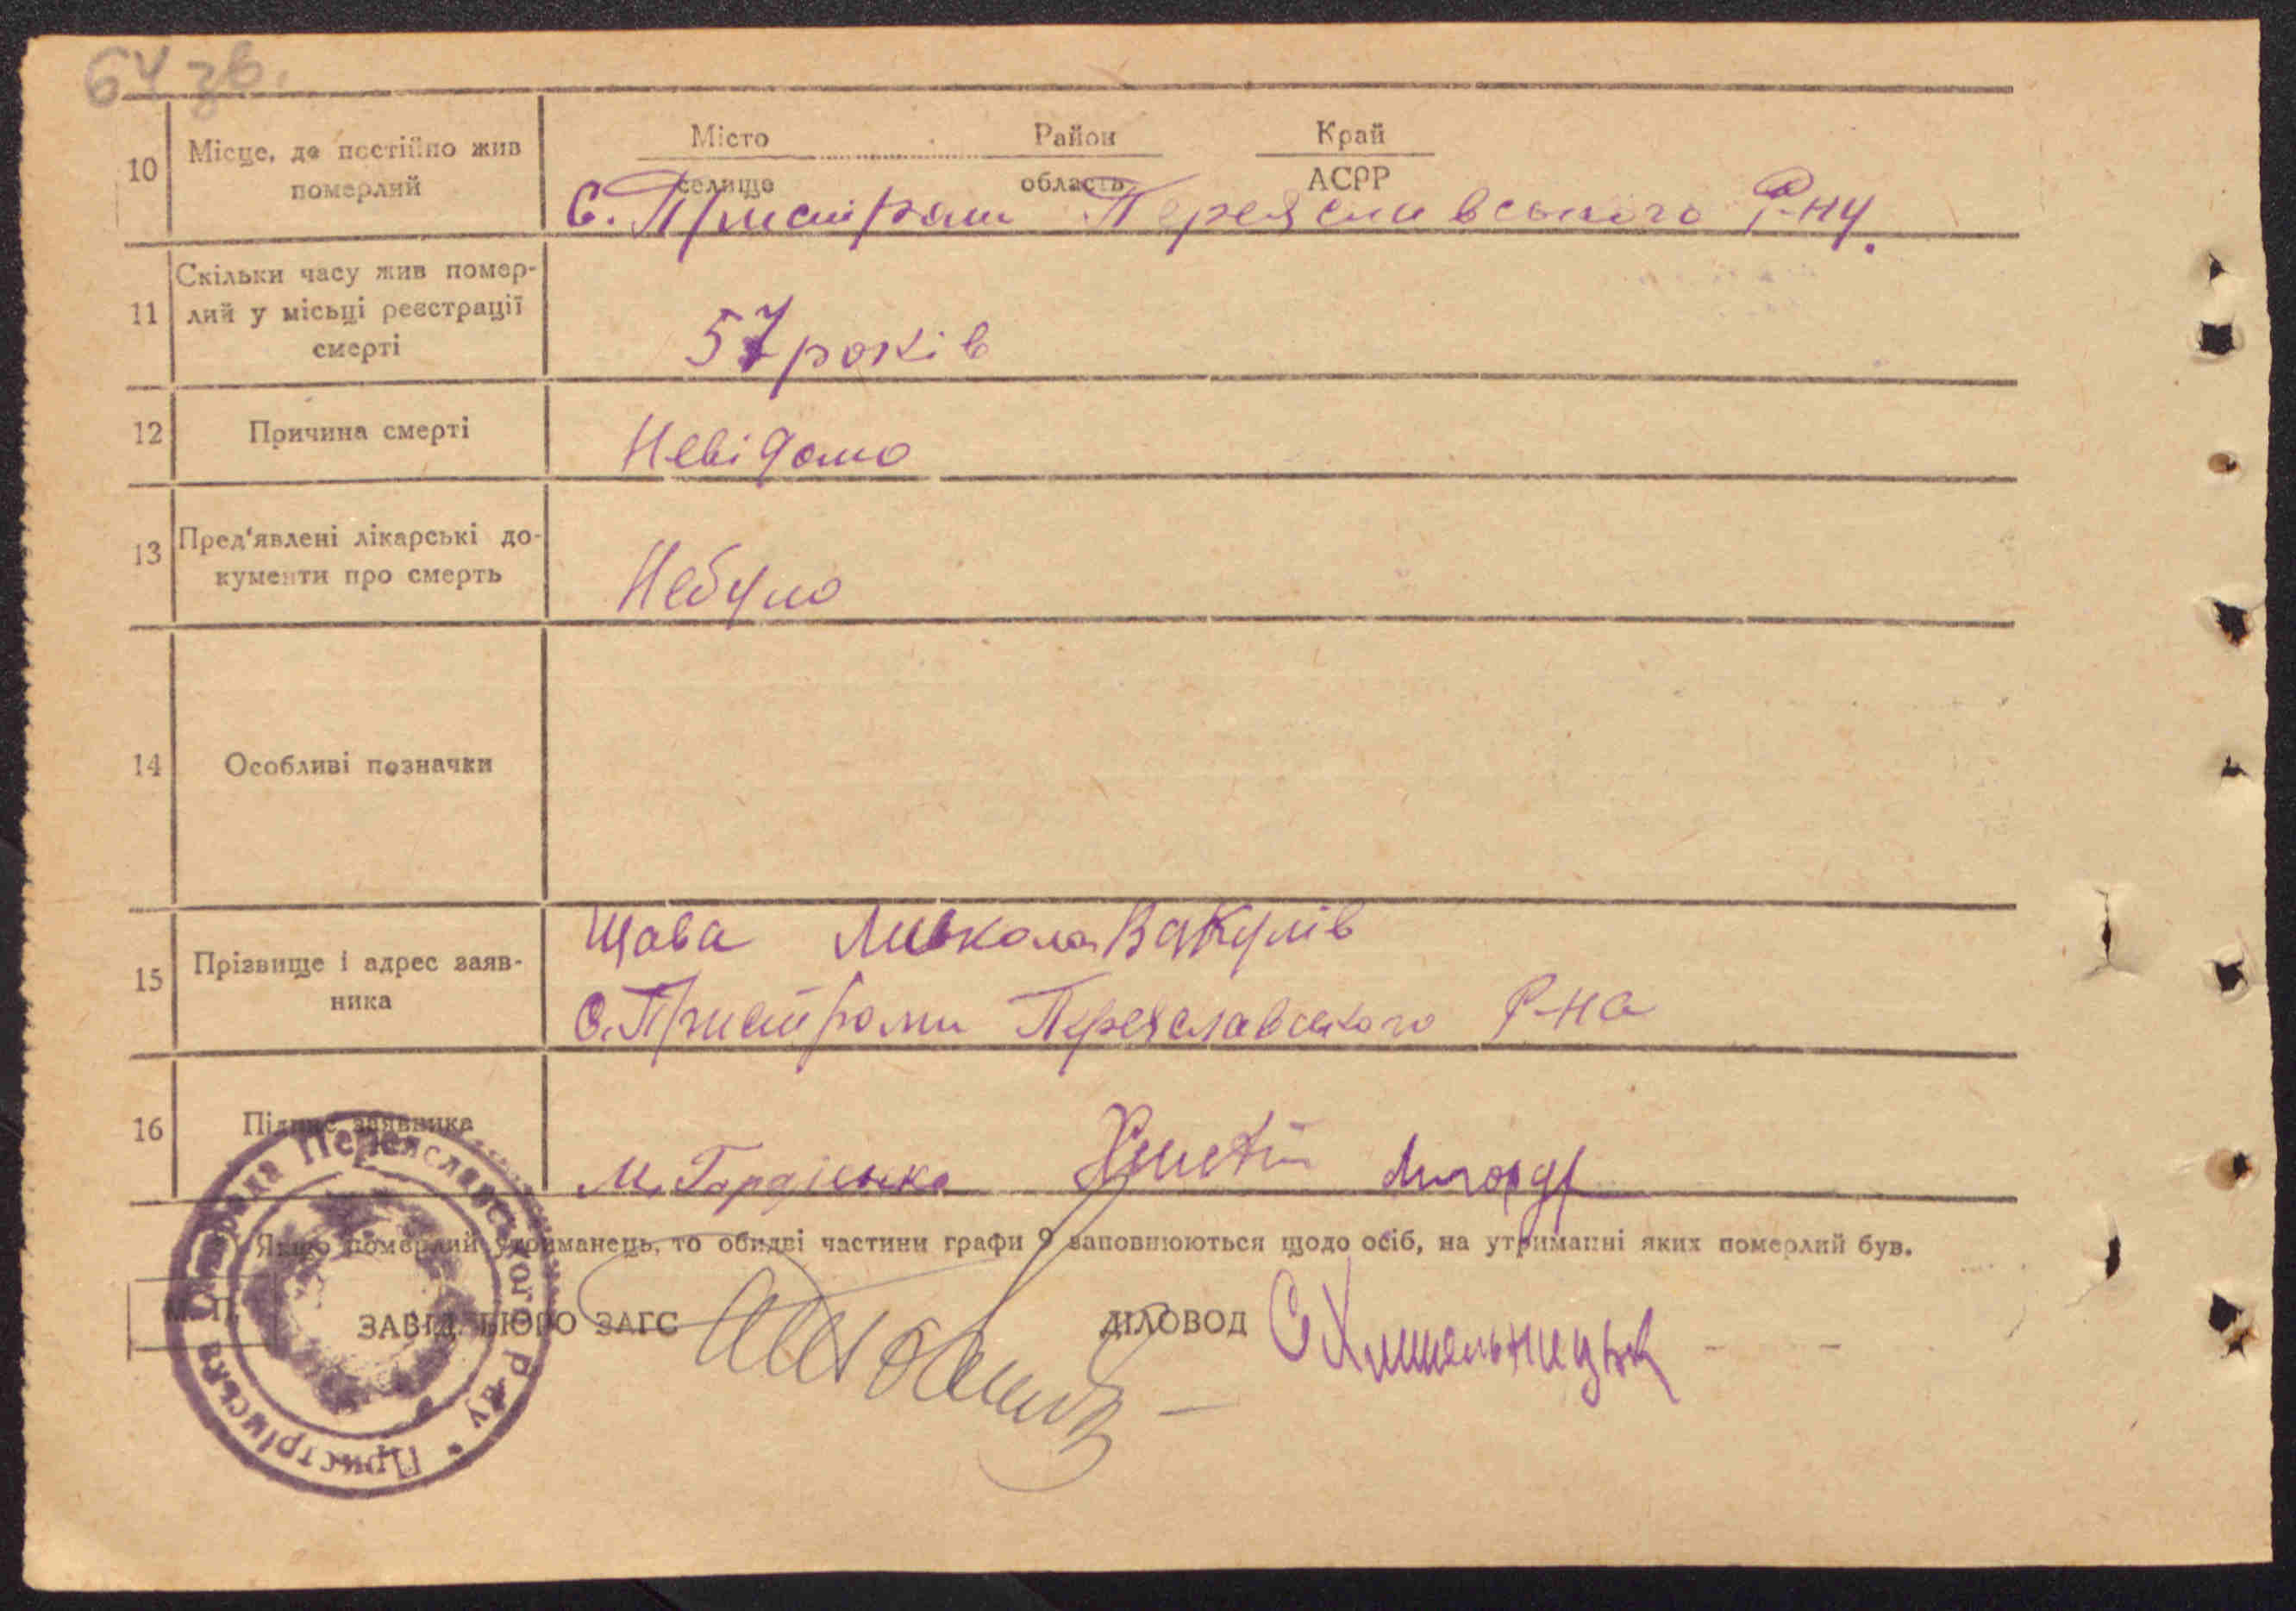 64 зв.
10 Місце, де постійно жив померлий
Місто Район Край
селище область АСРР
С. Пристром Переяславського Р-ну.
11 Скільки часу жив помер-
лий у місьці реєстрації
смерті
57 років
12 Причина смерті Невідомо
13 Пред'явлені лікарські до-
кументи про смерть
Небуло
14 Особливі позначки
15 Прізвище і адрес заяв-
ника
Щава Микола Вакулів
С. Пристроми Переяславського Р-на
16 Підпис заявника
М.
Якщо померлий утриманець, то обидві частини графи 9 заповнюються щодо осіб, на утриманні яких померлий був.
М. П. ЗАВІД. БЮРО ЗАГС ДІЛОВОД С Хмельницьк
Пристрімська сільрада Переяславського р-ну